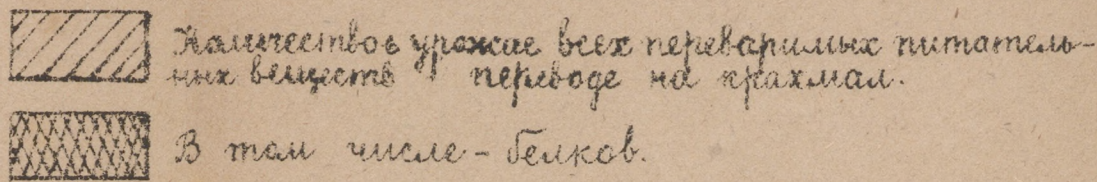 Количество в урожае всех переваримых питатель-
ных веществ переводе на крахмал.
В том числе - белков.